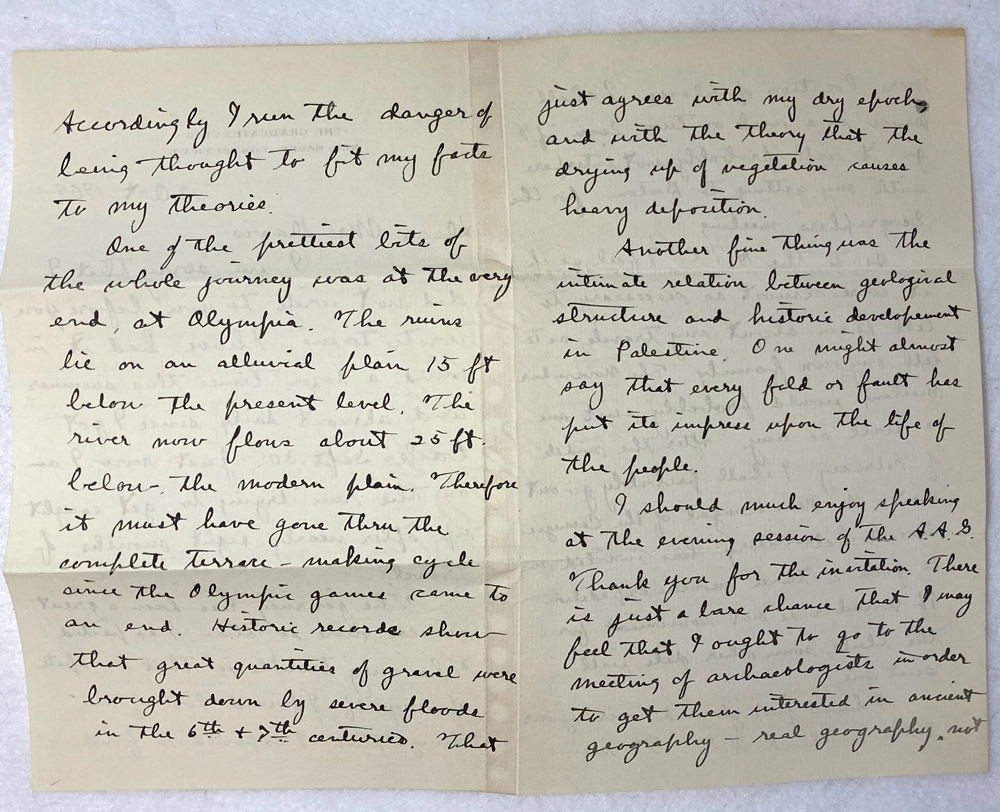 Accordingly I run the danger of
being thought to fit my facts
to my theories.
One of the prettiest bits of
the whole journey was at the very
end, at Olympia. The ruins
lie on an alluvial plain 15 ft
below the present level. The
river now flows about 25 ft.
below the modern plain. Therefore
it must have gone thru the
complete terrace-making cycle
since the Olympic games came to
an end. Historic records show
that great quantities of gravel were
brought down by severe floods
in the 6th + 7th centuries. That
just agrees with my dry epoch,
and with the theory that the
drying up of vegetation causes
heavy deposition.
Another fine thing was the
intimate relation between geological
structure and historic developement
in Palestine. One might almost
say that every fold or fault has
put its impress upon the life of
the people.
I should much enjoy speaking
at the evening session of the A.A.G.
Thank you for the invitation. There
is just a bare chance that I may
feel that I ought to go to the
meeting of archaeologists in order
to get them interested in ancient
geography – real geography, not